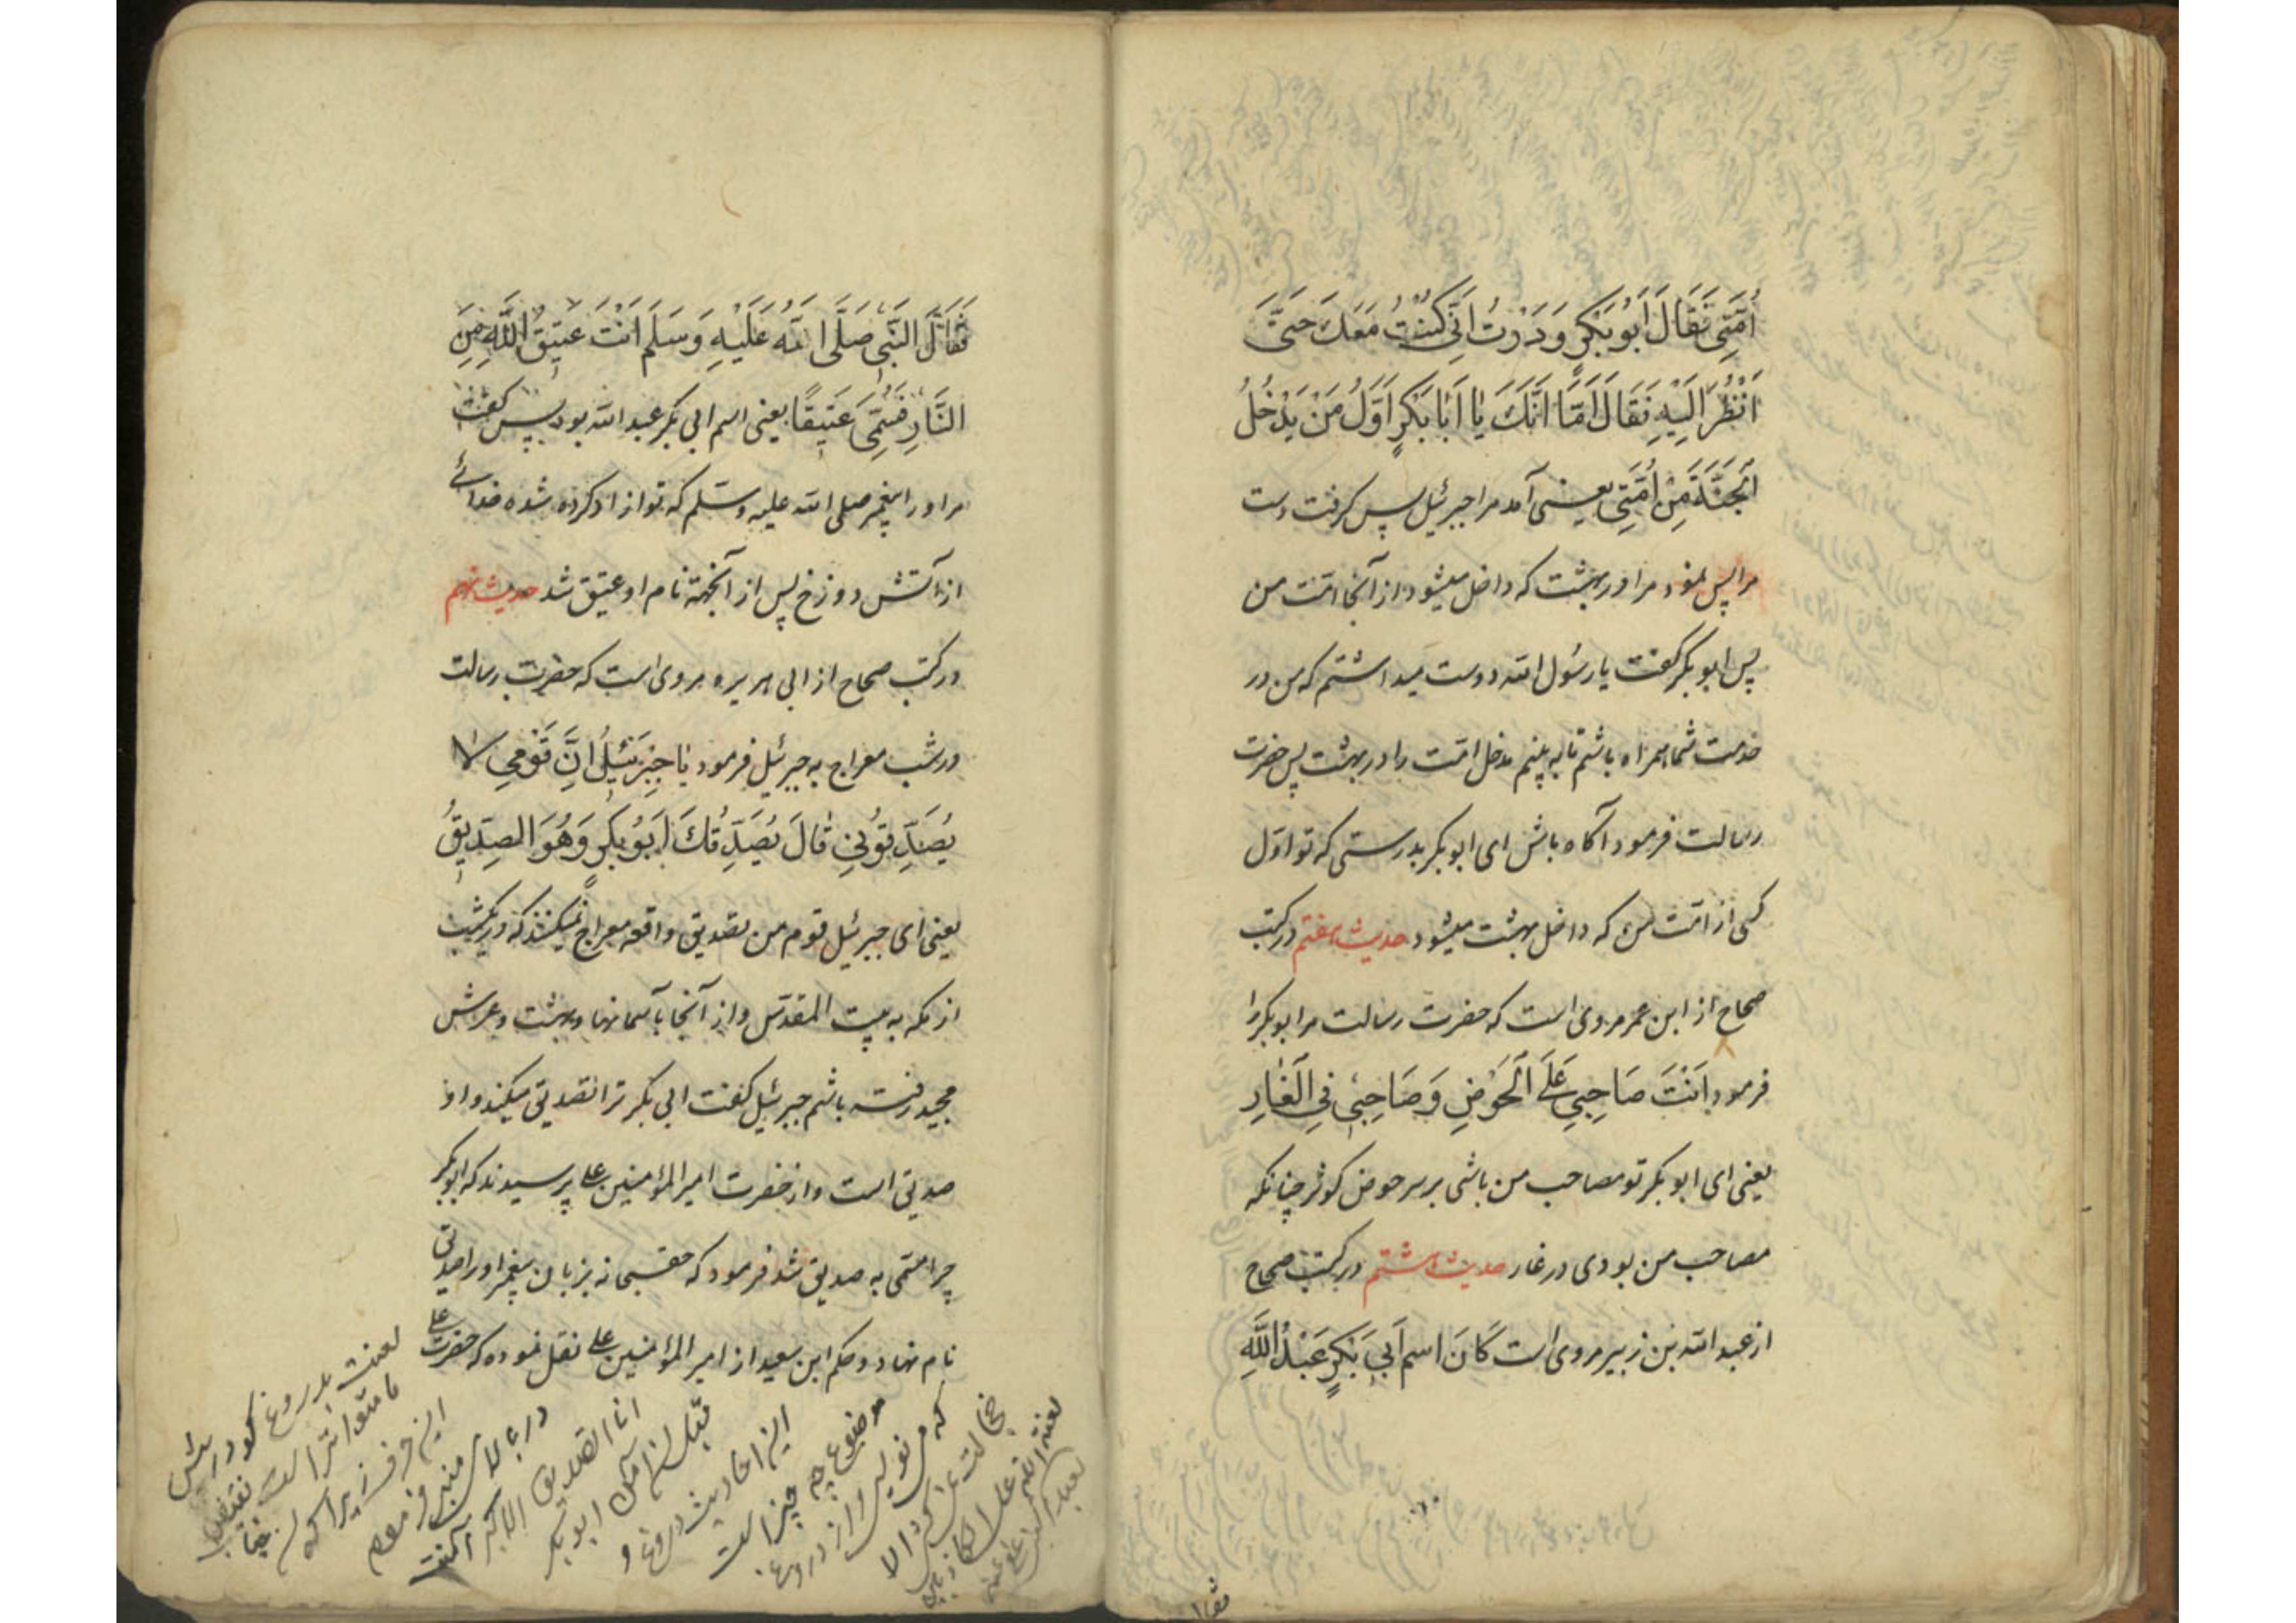 اُمَّتِی فَقَالَ اَبُو بَکْرٍ وَدَدْتُ اَنِّی کُنْتُ مَعَکَ حَتَّی
اَنْظُرَ اِلَیْهِ فَقَالَ اَمَّا اِنَّکَ یَا اَبَا بَکْرٍ اَوَّلُ مَنْ یَدْخُلُ
اَلْجَنَّةَ مِنْ اُمَّتِی یعنی آمد مرا جبرئیل پس کرفت دست
مرا پس نمود مرا در بهشت که داخل میشود از آنجا امّت من
پس ابو بکر کفت یا رسُول الله دوست میداشتم که من در
خدمت شما همراه باشم تا به بینم مدخل امّت را در بهشت پس حضرت
رسالت فرمود آکاه باش ای ابو بکر بدرستی که تو اوّل
کسی از امّت من که داخل بهشت میشود حدیث هفتم در کتب
صحاح از ابن عمر مروی است که حضرت رسالت مر ابو بکر را
فرمود اَنْتَ صَاحِبِی عَلَی اَلْحَوْضِ وَصَاحِبِی فِی اَلْغَارِ
یعنی ای ابو بکر تو مصاحب من باشی بر سر حوض کوثر چنانکه
مصاحب من بودی در غار حدیث هشتم در کتب صحاح
از عبد الله بن زبیر مروی است کَانَ اسم اَبِی بَکْرٍ عَبْدُ اللَّهِ
فقال
فَقَالَ النَّبِی صَلَّی اللَّهُ عَلَیْهِ وَسَلَم اَنْتَ عَتِیقُ اللَّهِ مِنَ
النَّارِ فَسُمِّیَ عَتِیقًا یعنی اسم ابی بکر عبد الله بود پس کفت
مر او را پیغمبر صلی الله علیه وسّلم که تو ازاد کرده شده خدائے
از آتش دوزخ پس از آنجهة نام او عتیق شد حدیث نهم
در کتب صحاح از ابی هریره مروی است که حضرت رسالت
در شب معراج به جبرئیل فرمود یَا جِبْرَئِیلُ اِنَّ قَوْمِی لا
یُصَدِّقُونِی قَالَ یُصَدِّقُکَ اَبُو بَکْرٍ وَهُوَ الصِدِّیقُ
یعنی ای جبرئیل قوم من تصدیق واقعه معراج نمیکنند که در یکشب
از مکه به بیت المقدّس و از آنجا بآسمانها و بهشت و عرش
مجید رفته باشم جبرئیل کفت ابی بکر ترا تصدیق میکند و او
صدیق است و از حضرت امیر المؤمنین علی پرسیدند که ابو بکر
چرا مسمّی به صدیق شد فرمود که حقسبحانه بزبان پیغمبر او را صدیق
نام نهاد و حکم ابن سعید از امیر المؤمنین علی نقل نموده که حضرت علی
لعنت بدروغ کو
در بالای منبر فرمود
انا الصدیق الاکبر آمنت
قبل ان آمن ابو بکر
این احادیث دروغ و
موضوع چه چیز است
که می نویسی و از دروغ
خجالت نمی کردی الا
لعنة الله علی الکاذبین